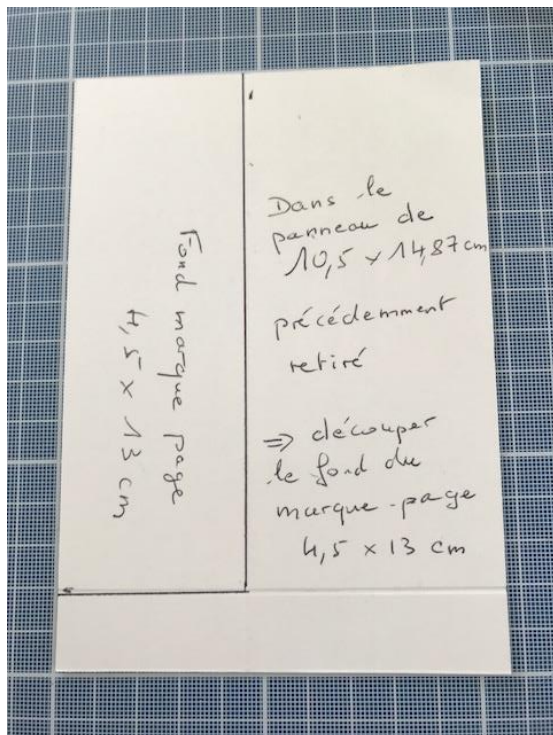 Fond marque page
4,5 x 13 cm
Dans le
panneau de
10,5 x 14,87 cm
précédemment
retiré
=> découper
le fond du
marque-page
4,5 x 13 cm